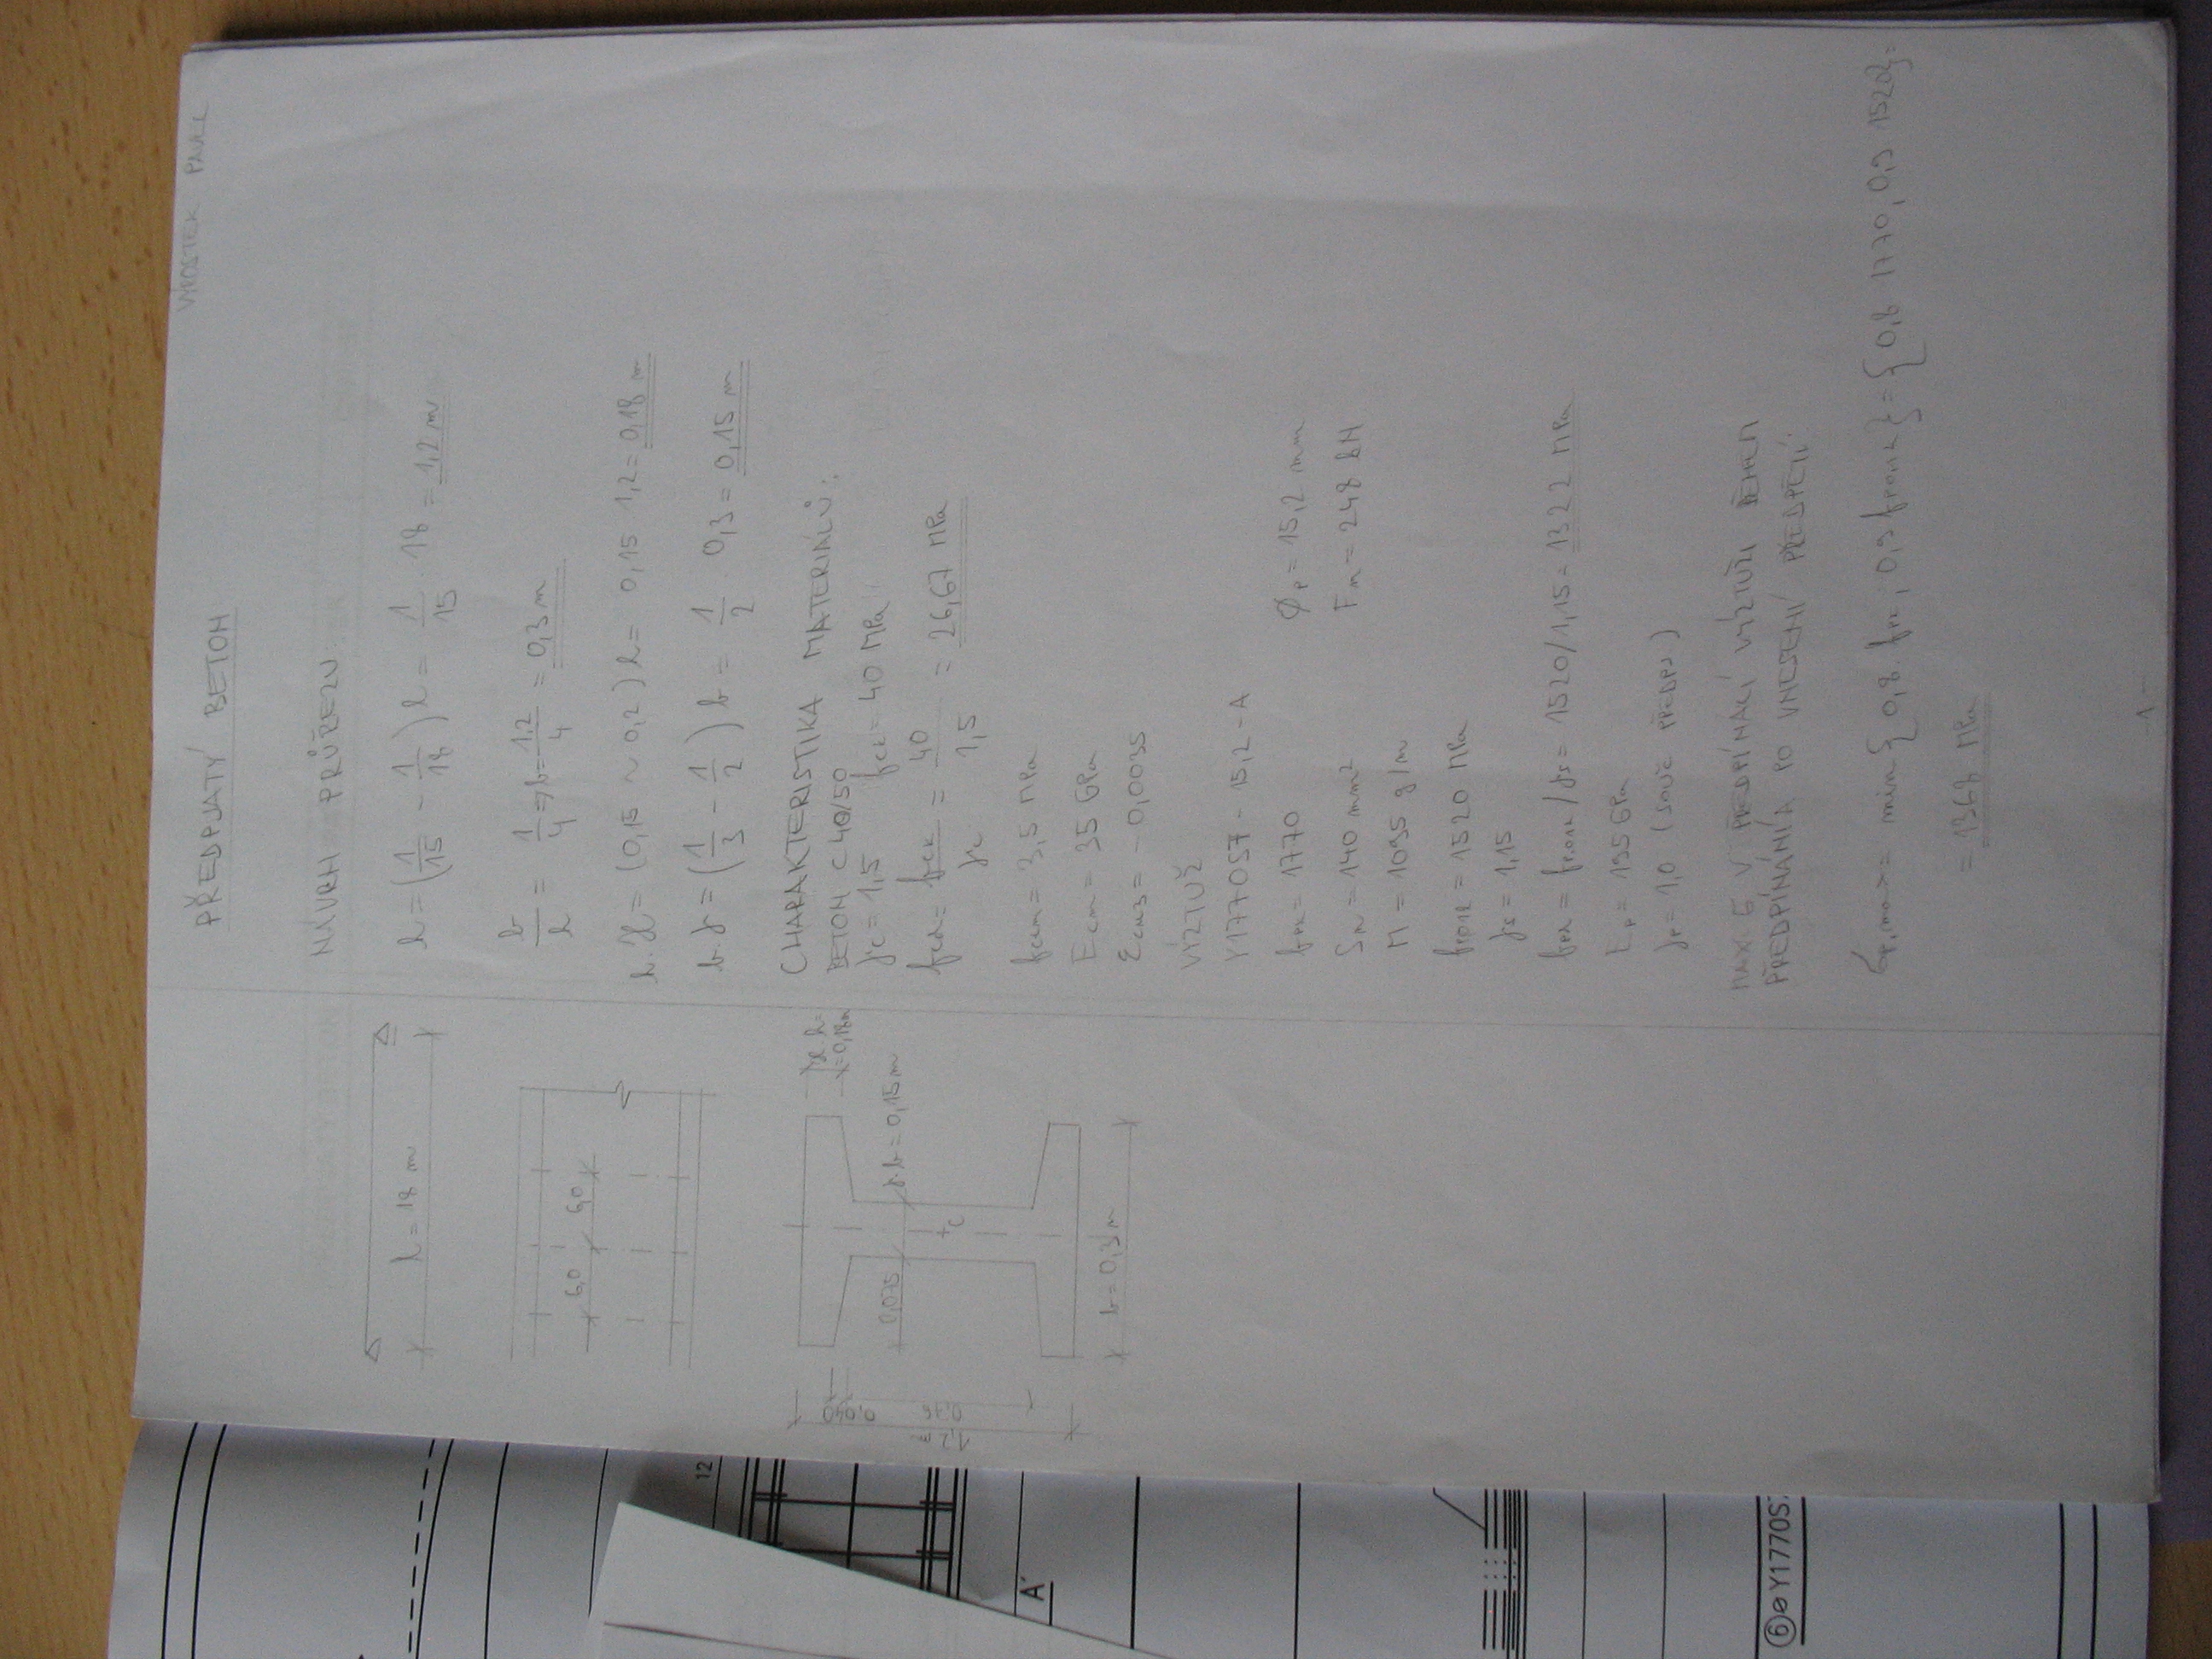 PŘEDPJATÝ BETON
NÁVRH PRŮŘEZU
h = (1/15 - 1/18) l = 1/15 · 18 = 1,2 m
b/h = 1/4 => b = 1,2/4 = 0,3 m
= (0,15 ~ 0,2) h = 0,15 1,2 = 0,18 m
= (1/3 - 1/2) b = 1/2 · 0,3 = 0,15 m
CHARAKTERISTIKA MATERIÁLŮ:
BETON C 40/50
γc = 1,5 fck = 40 MPa
fcd = fck/γc = 40/1,5 = 26,67 MPa
fctm = 3,5 MPa
Ecm = 35 GPa
εcu3 = -0,0035
VÝZTUŽ
Y1770S7 - 15,2 - A
fpk = 1770 Øp = 15,2 mm
Sn = 140 mm² Fm = 248 kN
M = 1095 g/m
fp01k = 1520 MPa
γs = 1,15
fpd = fp01k/γs = 1520/1,15 = 1322 MPa
Ep = 195 GPa
γp = 1,0 (
MAX σ V PŘEDPÍNACÍ VÝZTUŽI BĚHEM
PŘEDPÍNÁNÍ A PO VNESENÍ PŘEDPĚTÍ:
σp,max = min {0,8 · fpk ; 0,9 fp01k} = {0,8 1770, 0,9 1520} =
= 1368 MPa
-1-
l = 18 m
6,0 6,0
= 0,18m
= 0,15m
0,075
C
b = 0,3 m
0,040
0,76
1,2 m
12
A'
6 ø Y1770S7